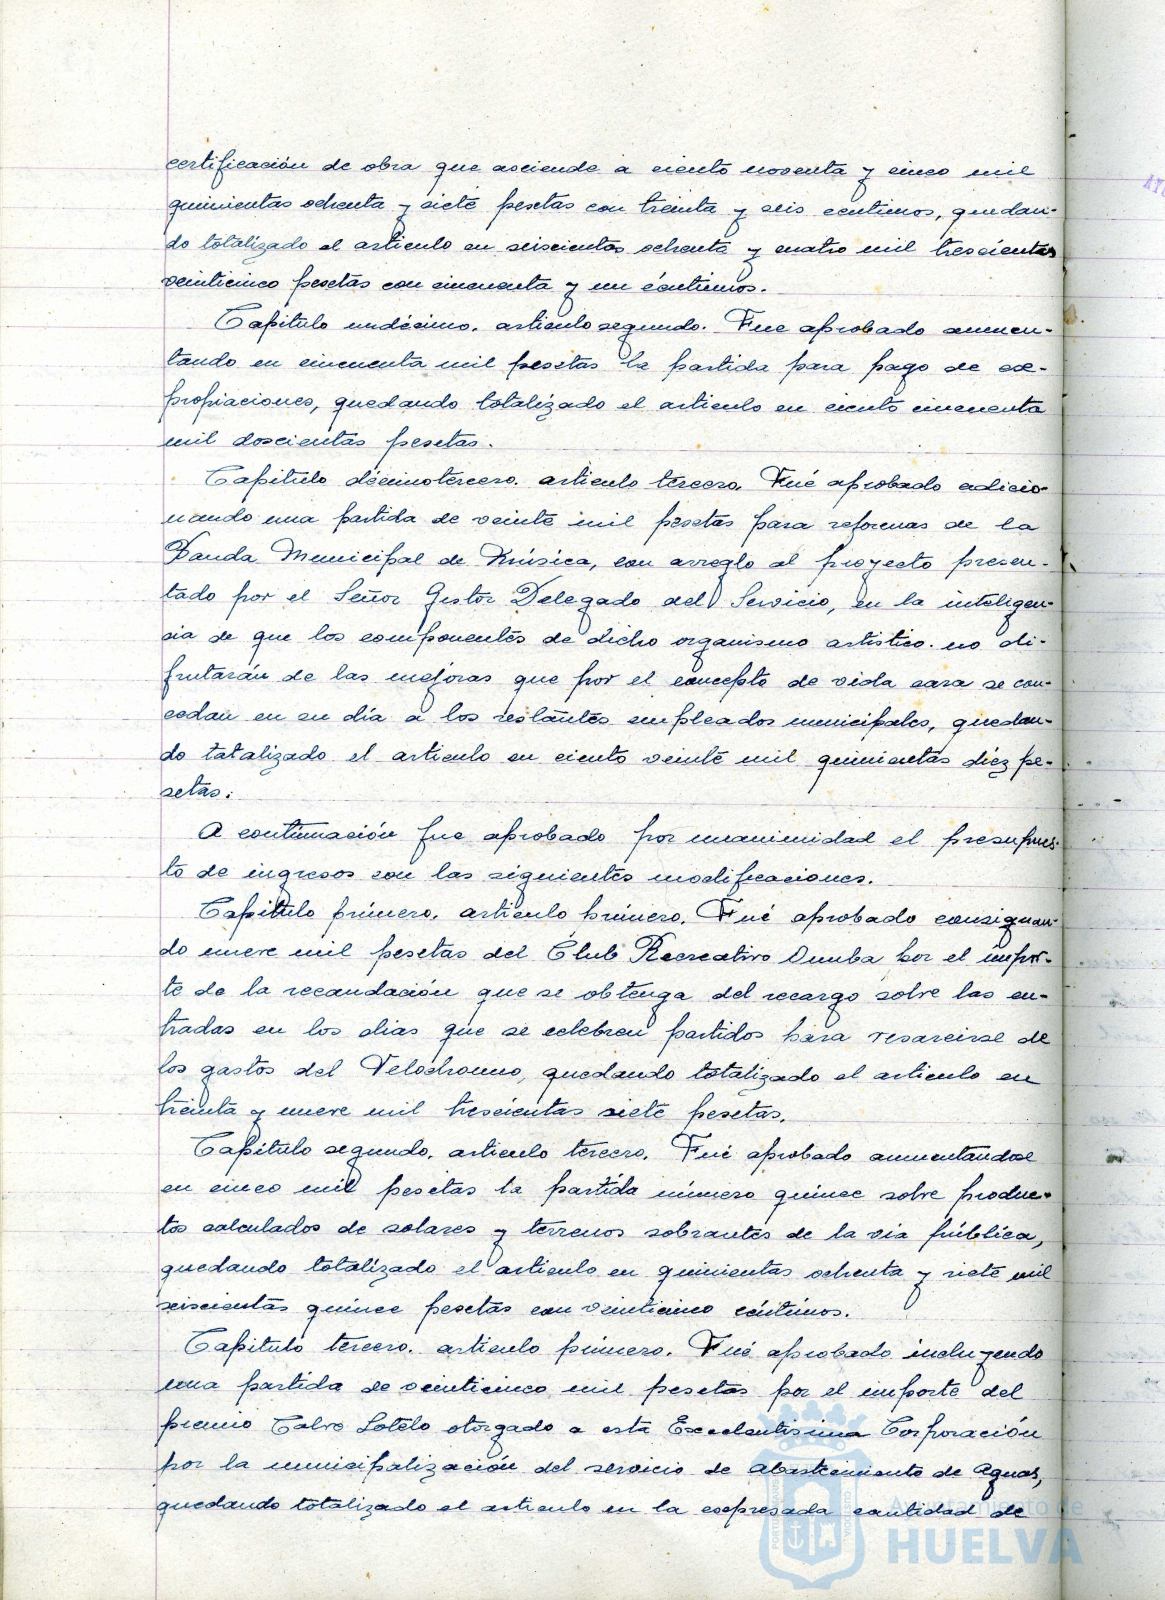 certificación de obra que asciende a ciento noventa y cinco mil
quinientas ochenta y siete pesetas con treinta y seis centimos, quedan-
do totalizado el articulo en seiscientas ochenta y cuatro mil trescientas
veinticinco pesetas con cincuenta y un céntimos.
Capitulo undécimo. articulo segundo. Fue aprobado aumen-
tando en cincuenta mil pesetas la partida para pago de ex-
propiaciones, quedando totalizado el articulo en ciento cincuenta
mil doscientas pesetas.
Capitulo décimotercero. articulo tercero. Fué aprobado adicio-
nando una partida de veinte mil pesetas para reformas de la
Banda Municipal de Música, con arreglo al proyecto presen-
tado por el Señor Gestor Delegado del Servicio, en la inteligen-
cia de que los componentes de dicho organismo artistico. no di-
frutarán de las mejoras que por el concepto de vida cara se con-
cedan en su día a los restantes empleados municipales, quedan-
do totalizado el articulo en ciento veinte mil quinientas diez pe-
setas.
A continuación fue aprobado por unanimidad el presupues-
to de ingresos con las siguientes modificaciones.
Capitulo primero. articulo primero. Fué aprobado consignan-
do nueve mil pesetas del Club Recreativo Onuba por el impor-
te de la recaudación que se obtenga del recargo sobre las en-
tradas en los dias que se celebren partidos para resarcirse de
los gastos del Velodromo, quedando totalizado el articulo en
treinta y nueve mil trescientas siete pesetas.
Capitulo segundo. articulo tercero. Fué aprobado aumentandose
en cinco mil pesetas la partida número quince sobre produc-
tos calculados de solares y terrenos sobrantes de la via pública,
quedando totalizado el articulo en quinientas ochenta y siete mil
seiscientas quince pesetas con veinticinco céntimos.
Capitulo tercero. articulo primero. Fué aprobado incluyendo
una partida de veinticinco mil pesetas por el importe del
premio Calvo Sotelo otorgado a esta Excelentisima Corporación
por la municipalización del servicio de abastecimiento de aguas,
quedando totalizado el articulo en la expresada cantidad de
Ayuntamiento de
HUELVA